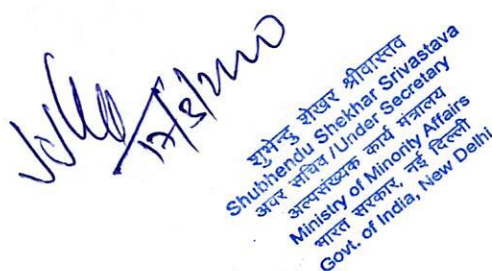 17/3/2020
शुभेन्दु शेखर श्रीवास्तव
Shubhendu Shekhar Srivastava
अवर सचिव /Under Secretary
अल्पसंख्यक कार्य मंत्रालय
Ministry of Minority Affairs
भारत सरकार, नई दिल्ली
Govt. of India, New Delhi